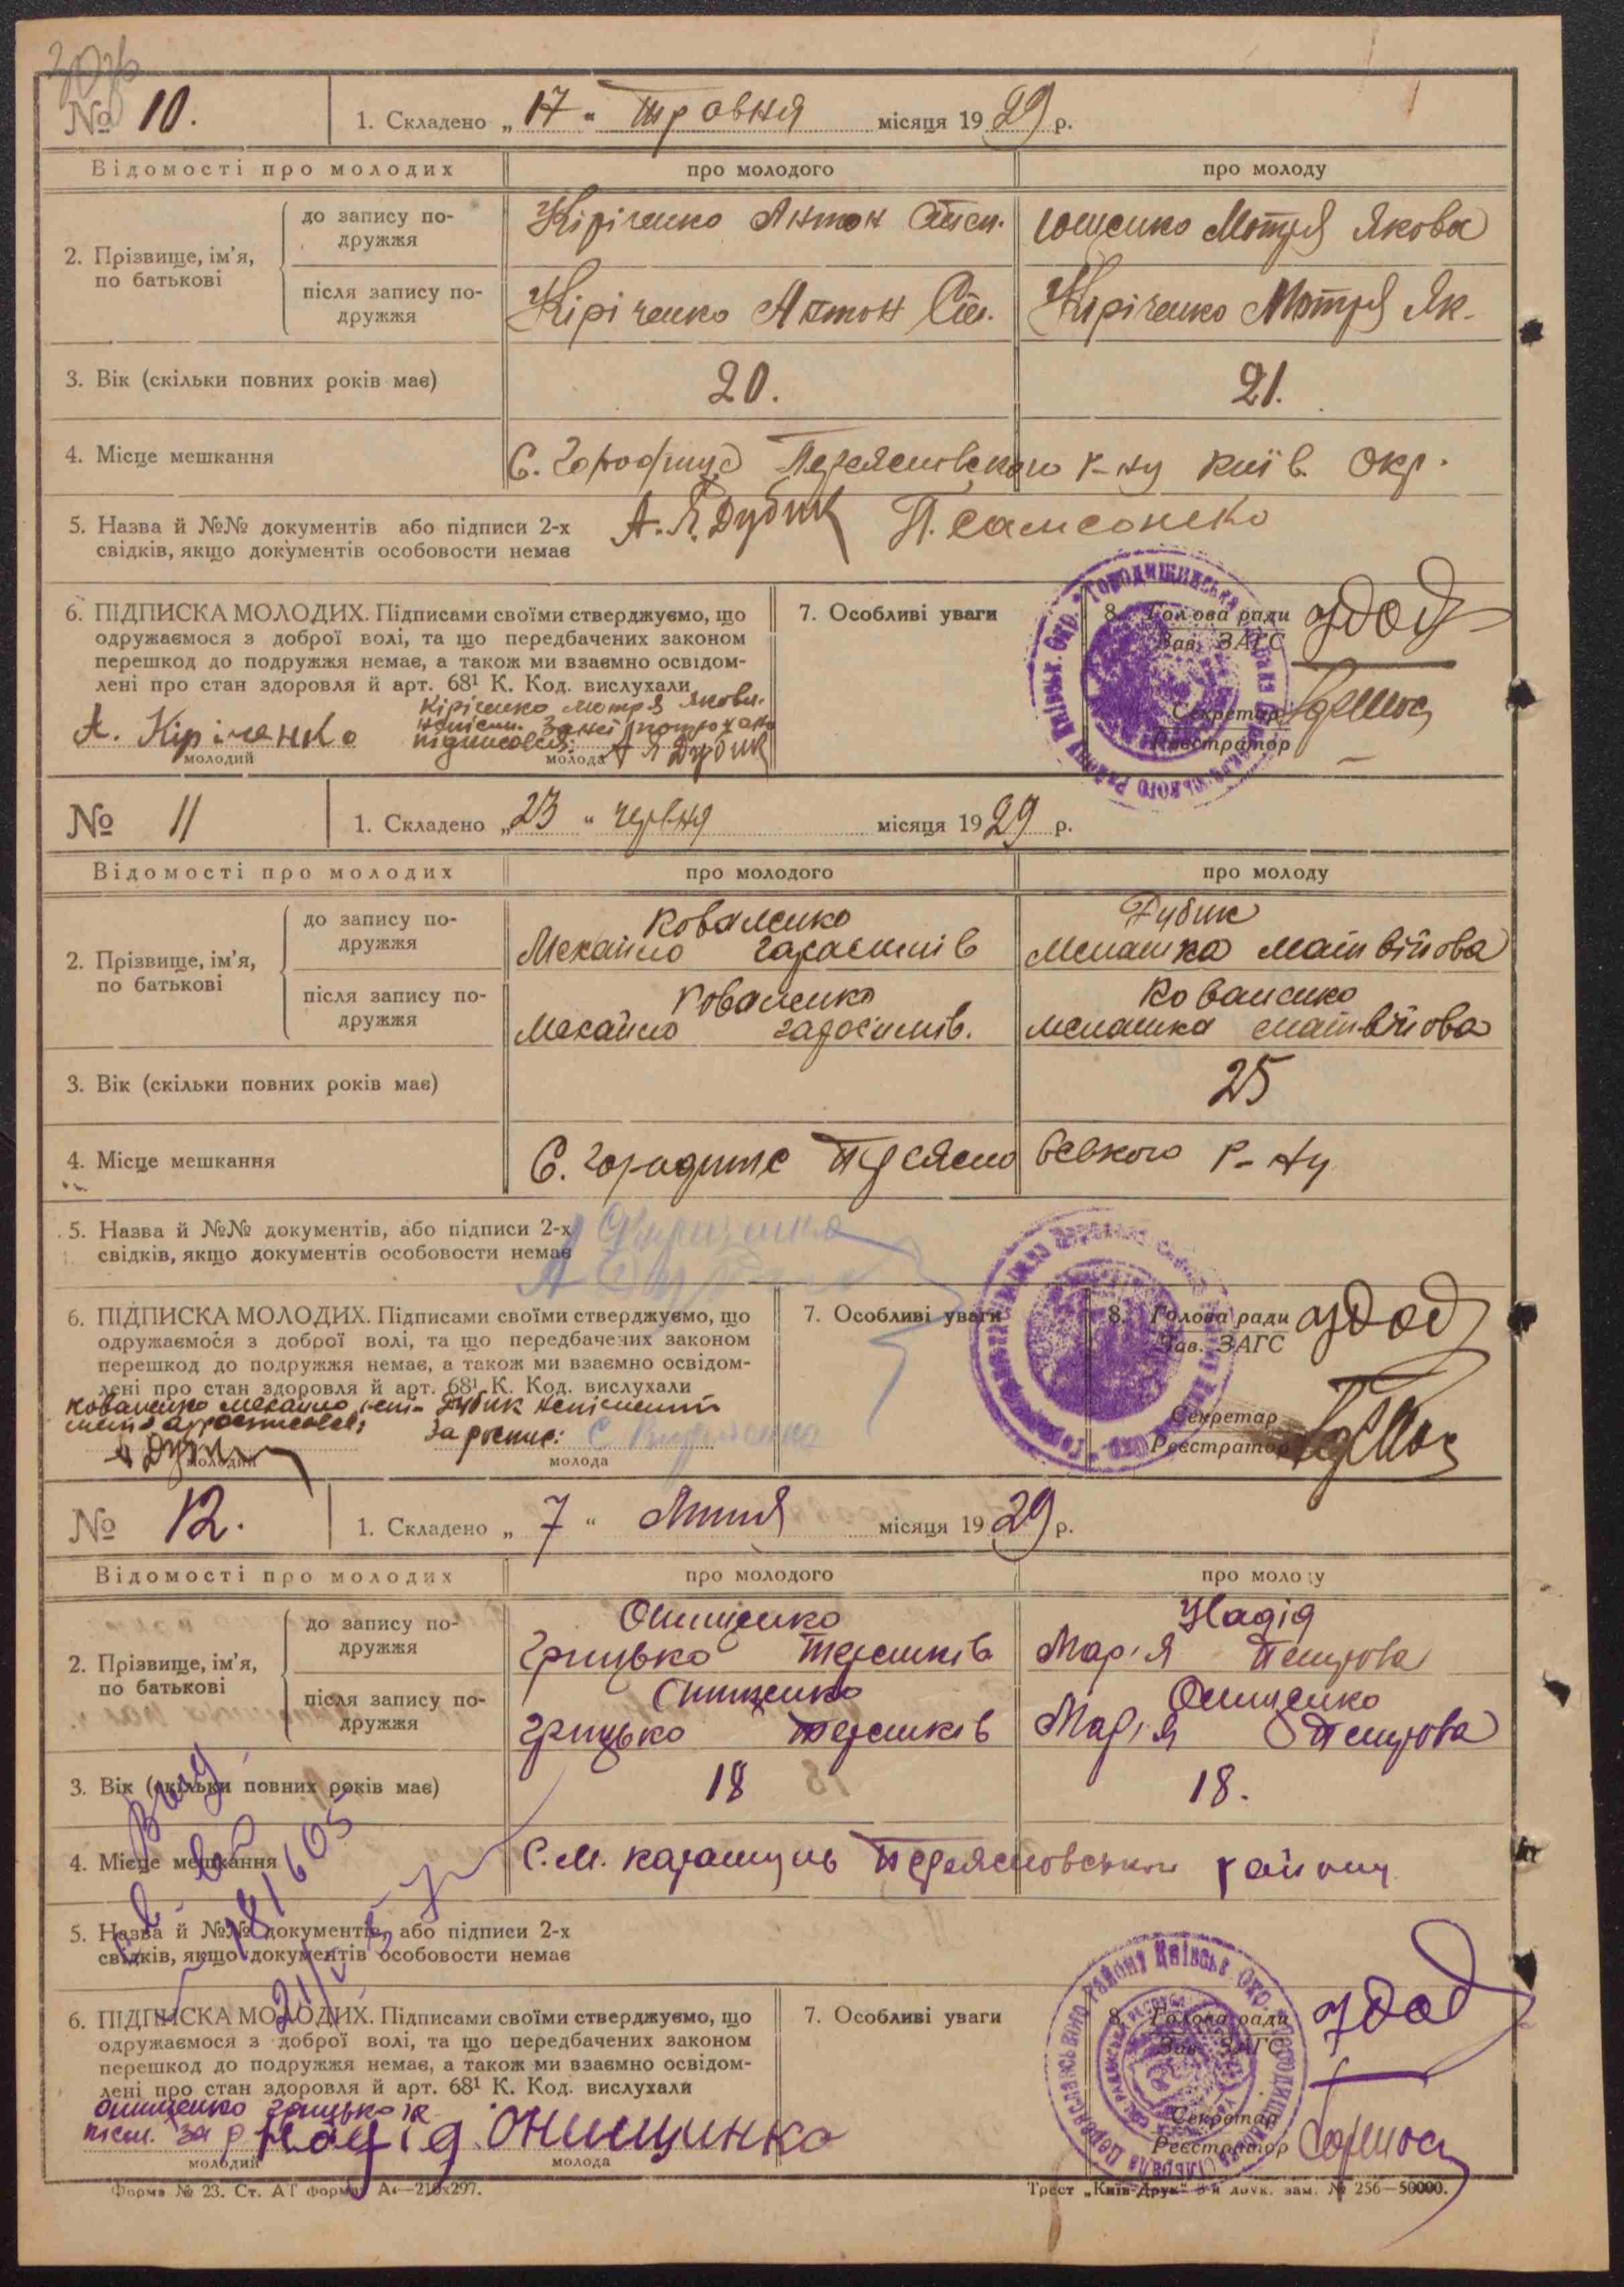 № 10. 1. Складено „17“ травня місяця 1929 р.
Відомості про молодих про молодого про молоду
2. Прізвище, ім'я, по батькові
до запису подружжя Кіріченко Антон Степ. Ющенко Мотря Якова
після запису подружжя Кіріченко Антон Сте. Кіріченко Мотря Як.
3. Вік (скільки повних років має) 20. 21.
4. Місце мешкання С. Городище Переяславського р-ну Київ. Окр.
5. Назва й №№ документів або підписи 2-х А. Я. Дубик П. Самсоненко
свідків, якщо документів особовости немає
6. ПІДПИСКА МОЛОДИХ. Підписами своїми стверджуємо, що
одружаємося з доброї волі, та що передбачених законом
перешкод до подружжя немає, а також ми взаємно освідом-
лені про стан здоровля й арт. 68¹ К. Код. вислухали
Кіріченко Мотря Якова.
А. Кіріченко підписався: А Я Дубик
молодий молода
7. Особливі уваги
8. Голова ради
Зав. ЗАГС
Секретар
Реєстратор
№ 11 1. Складено „23“ червня місяця 1929 р.
Відомості про молодих про молодого про молоду
2. Прізвище, ім'я, по батькові
до запису подружжя
Коваленко Дубик
Мехайло Гарасимів Мелашка Матвійова
після запису подружжя
Коваленко Коваленко
Мехайло Гарасимів. Мелашка Матвійова
3. Вік (скільки повних років має) 25
4. Місце мешкання С. Городище Переяславського р-ну
5. Назва й №№ документів, або підписи 2-х
свідків, якщо документів особовости немає
6. ПІДПИСКА МОЛОДИХ. Підписами своїми стверджуємо, що
одружаємося з доброї волі, та що передбачених законом
перешкод до подружжя немає, а також ми взаємно освідом-
лені про стан здоровля й арт. 68¹ К. Код. вислухали
Коваленко Мехайло Дубик неписьмен
молодий молода
7. Особливі уваги
8. Голова ради
Зав. ЗАГС
Секретар
Реєстратор
№ 12. 1. Складено „7“ Липня місяця 1929 р.
Відомості про молодих про молодого про молоду
2. Прізвище, ім'я, по батькові
до запису подружжя
Онищенко Надія
Грицько Терешків Марія Петрова
після запису подружжя
Онищенко Онищенко
Грицько Терешків Марія Петрова
3. Вік (скільки повних років має) 18 18.
4. Місце мешкання С. М. Каратуль Переяславського району
5. Назва й №№ документів, або підписи 2-х
свідків, якщо документів особовости немає
6. ПІДПИСКА МОЛОДИХ. Підписами своїми стверджуємо, що
одружаємося з доброї волі, та що передбачених законом
перешкод до подружжя немає, а також ми взаємно освідом-
лені про стан здоровля й арт. 68¹ К. Код. вислухали
Онищенко Грицько
Надія Онищинко
молодий молода
7. Особливі уваги
8. Голова ради
Зав. ЗАГС
Секретар
Реєстратор
Форма № 23. Ст. АГ формат А4—210х297.
Трест „Київ-Друк“ 3-я друк. зам. № 256—50000.